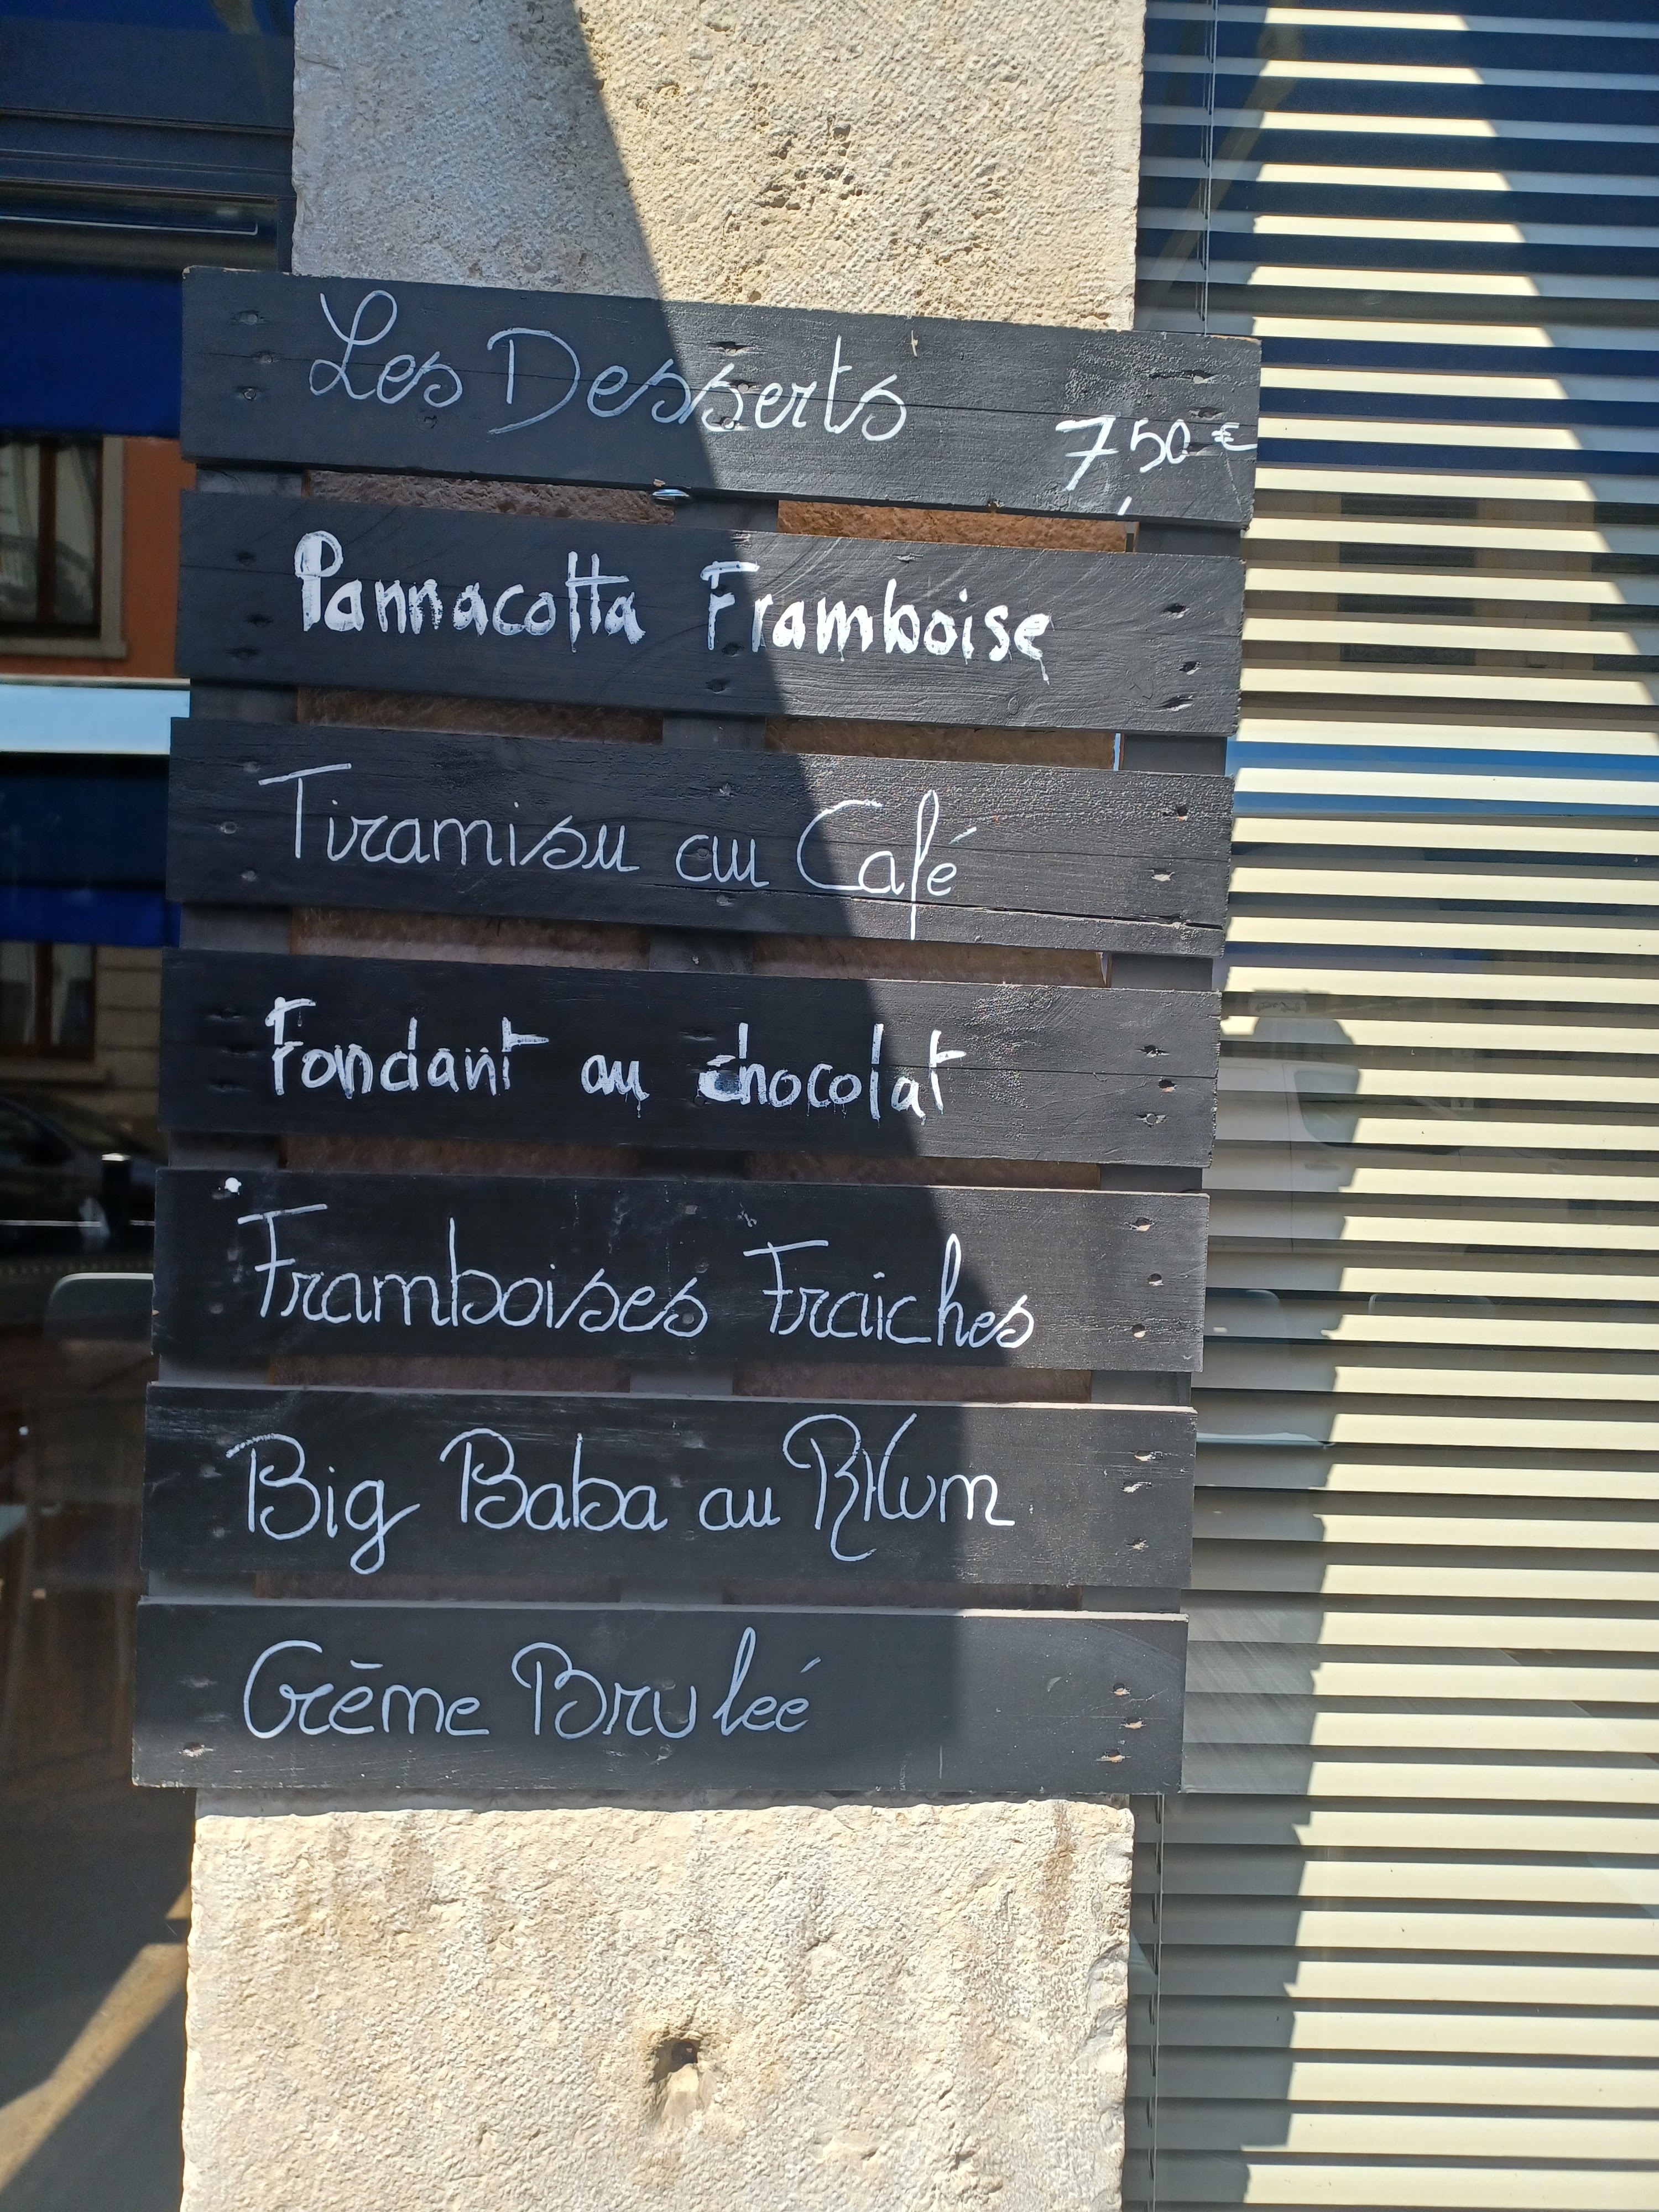 Les Desserts
7,50€
Pannacotta Framboise
Tiramisu au Café
Fondant au chocolat
Framboises Fraîches
Big Baba au RHum
Crēme Bruleé